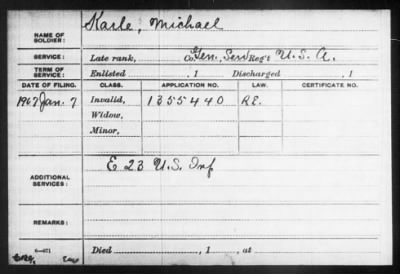 NAME OF SOLDIER: Karle, Michael
SERVICE: Late rank, Co. Gen. Serv Reg't U.S.A.
TERM OF SERVICE: Enlisted , 1 Discharged , 1
DATE OF FILING. CLASS. APPLICATION NO. LAW. CERTIFICATE NO.
1907 Jan. 7 Invalid, 1355440 R.E.
Widow,
Minor,
ADDITIONAL SERVICES: E 23 U.S. Inf
REMARKS:
Died , 1 , at